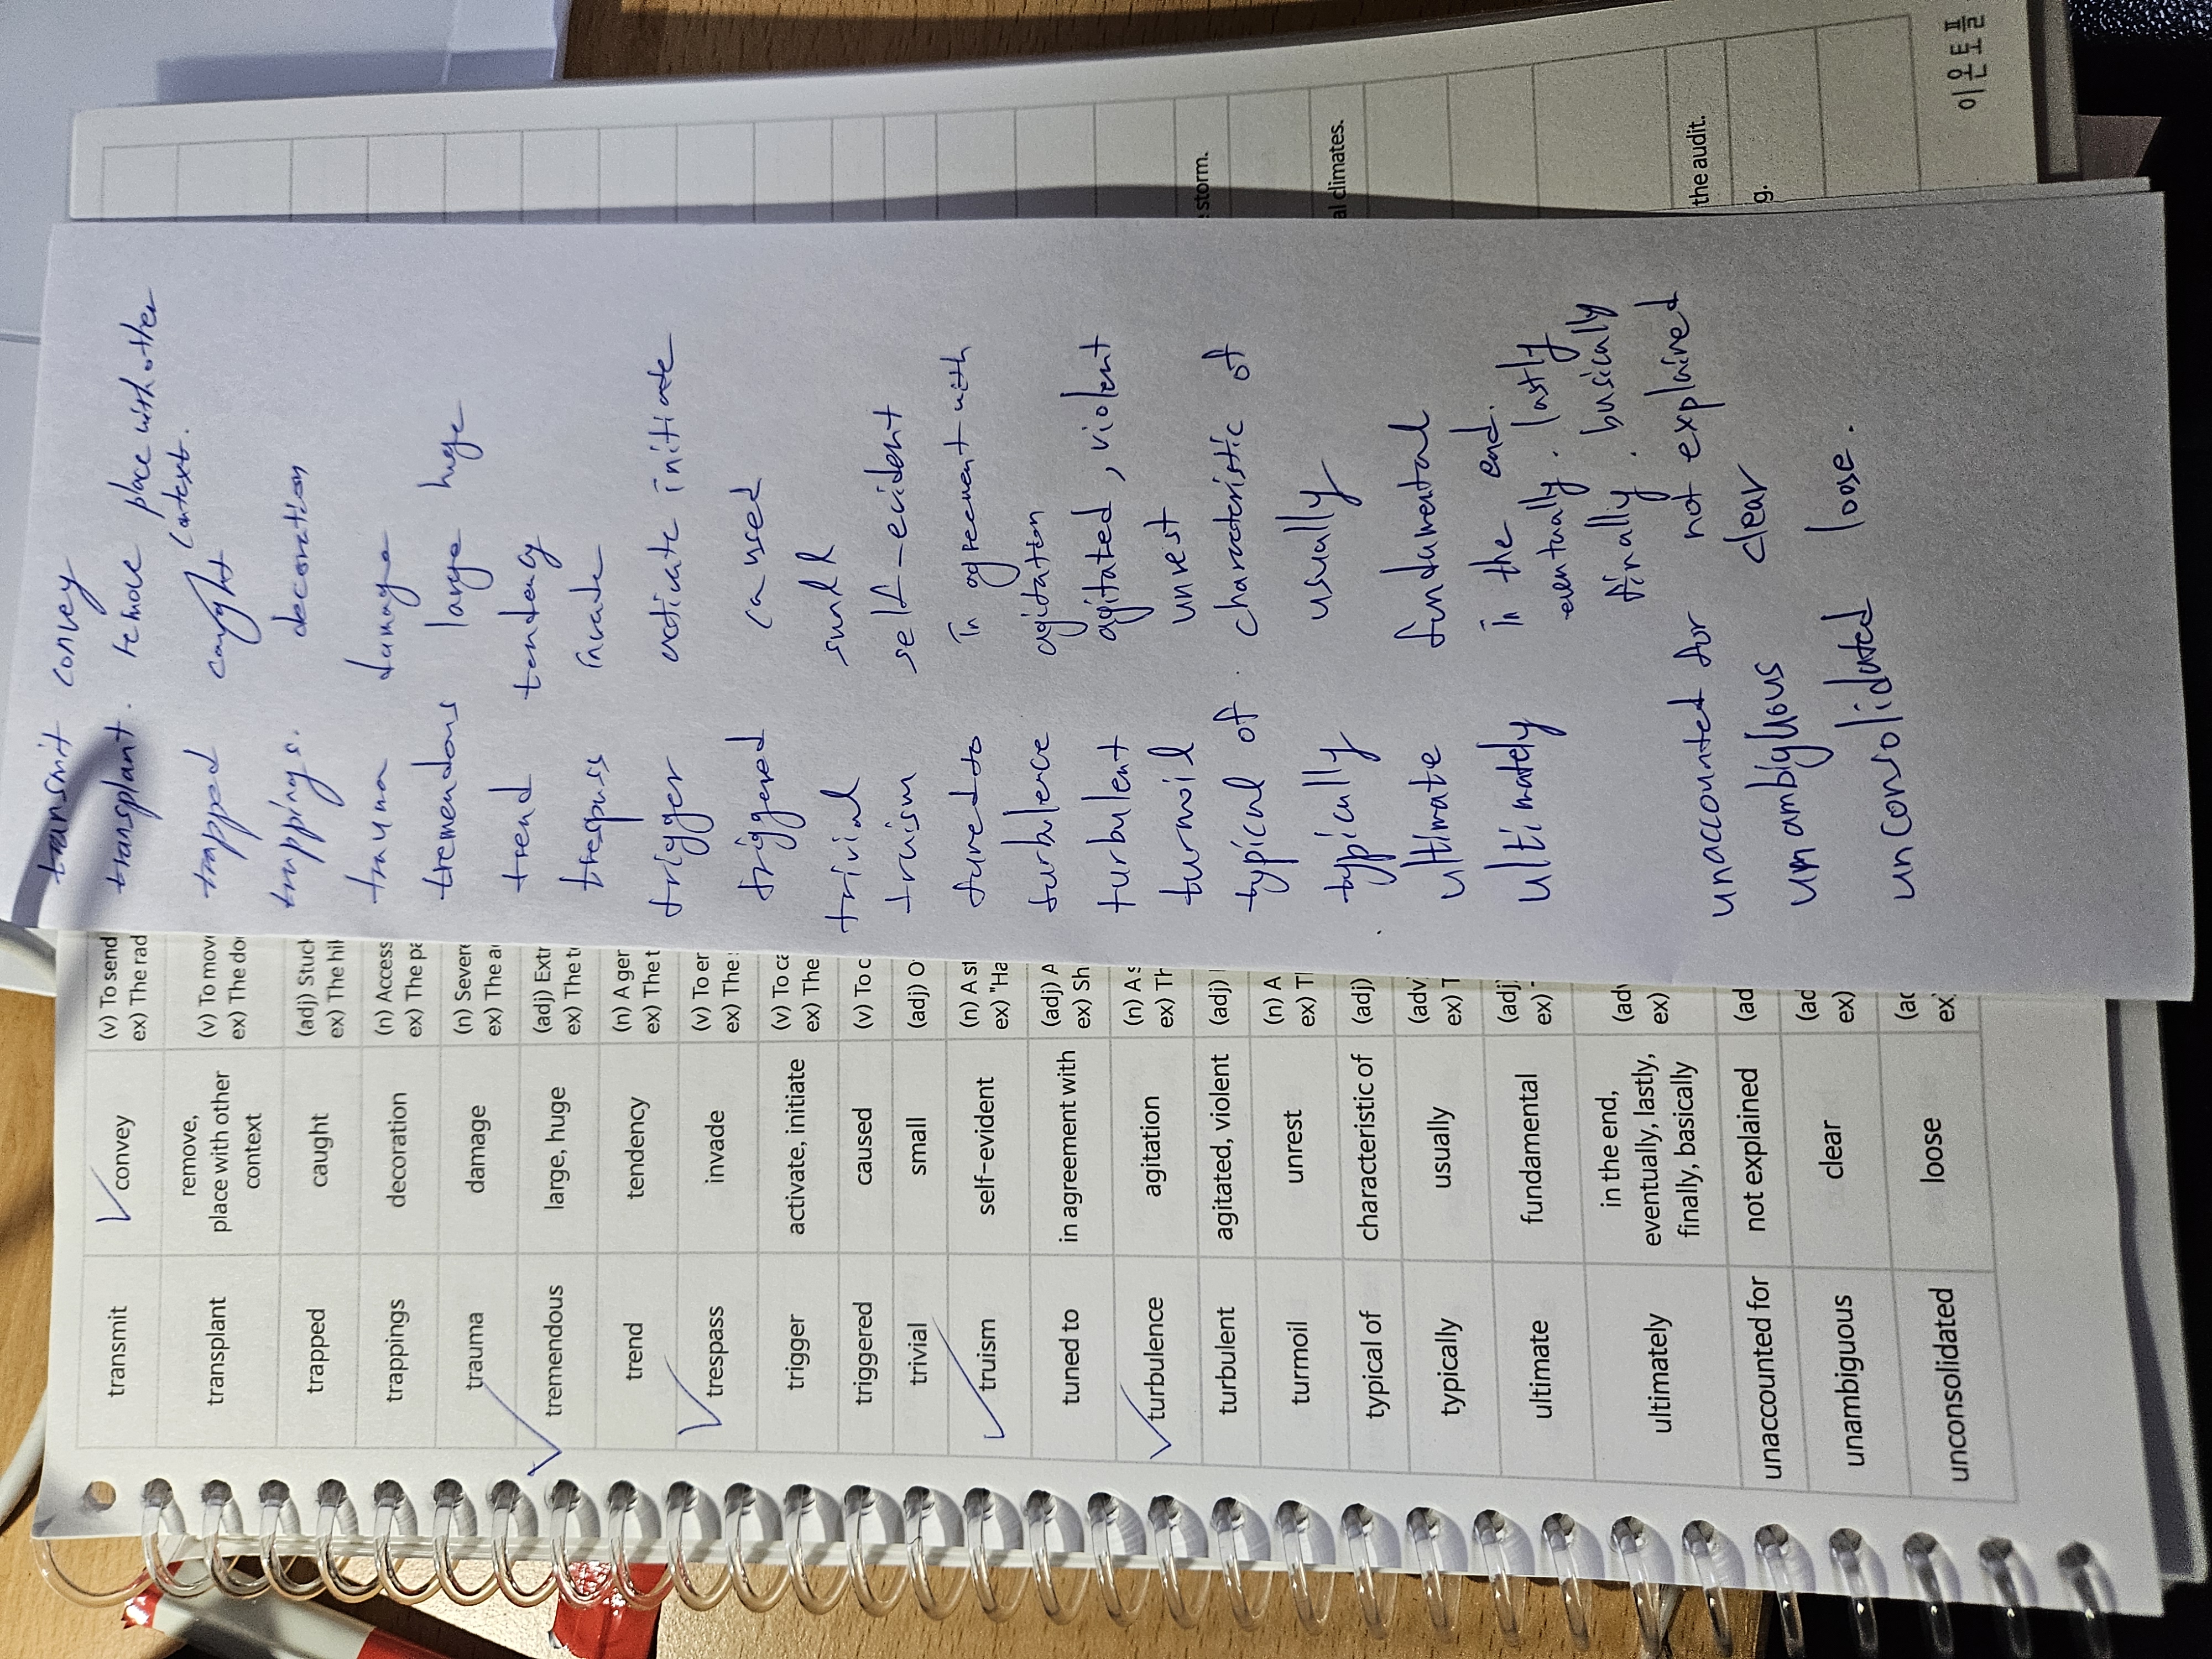 transmit convey
transplant. remove place with other
context.
trapped caught
trappings. decoration
trauma damage
tremendous large huge
trend tendency
trespass invade
trigger activate initiate
triggered caused
trivial small
truism self-evident
tuned to in agreement with
turbulence agitation
turbulent agitated, violent
turmoil unrest
typical of characteristic of
typically usually
ultimate fundamental
ultimately in the end.
eventually. lastly
finally. basically
unaccounted for not explained
unambiguous clear
unconsolidated loose.
transmit convey (v) To send
ex) The rad
transplant remove,
place with other
context (v) To mov
ex) The do
trapped caught (adj) Stuck
ex) The hik
trappings decoration (n) Access
ex) The pa
trauma damage (n) Severe
ex) The a
tremendous large, huge (adj) Extr
ex) The t
trend tendency (n) A ger
ex) The t
trespass invade (v) To er
ex) The
trigger activate, initiate (v) To ca
ex) The
triggered caused (v) To c
trivial small (adj) O
truism self-evident (n) A st
ex) "Ha
tuned to in agreement with (adj) A
ex) Sh
turbulence agitation (n) A s
ex) Th
turbulent agitated, violent (adj)
turmoil unrest (n) A
ex) T
typical of characteristic of (adj)
typically usually (adv
ex) T
ultimate fundamental (adj
ex)
ultimately in the end,
eventually, lastly,
finally, basically (adv
ex)
unaccounted for not explained (ad
unambiguous clear (ad
ex)
unconsolidated loose (ad
ex)
storm.
al climates.
the audit.
g.
이온토플